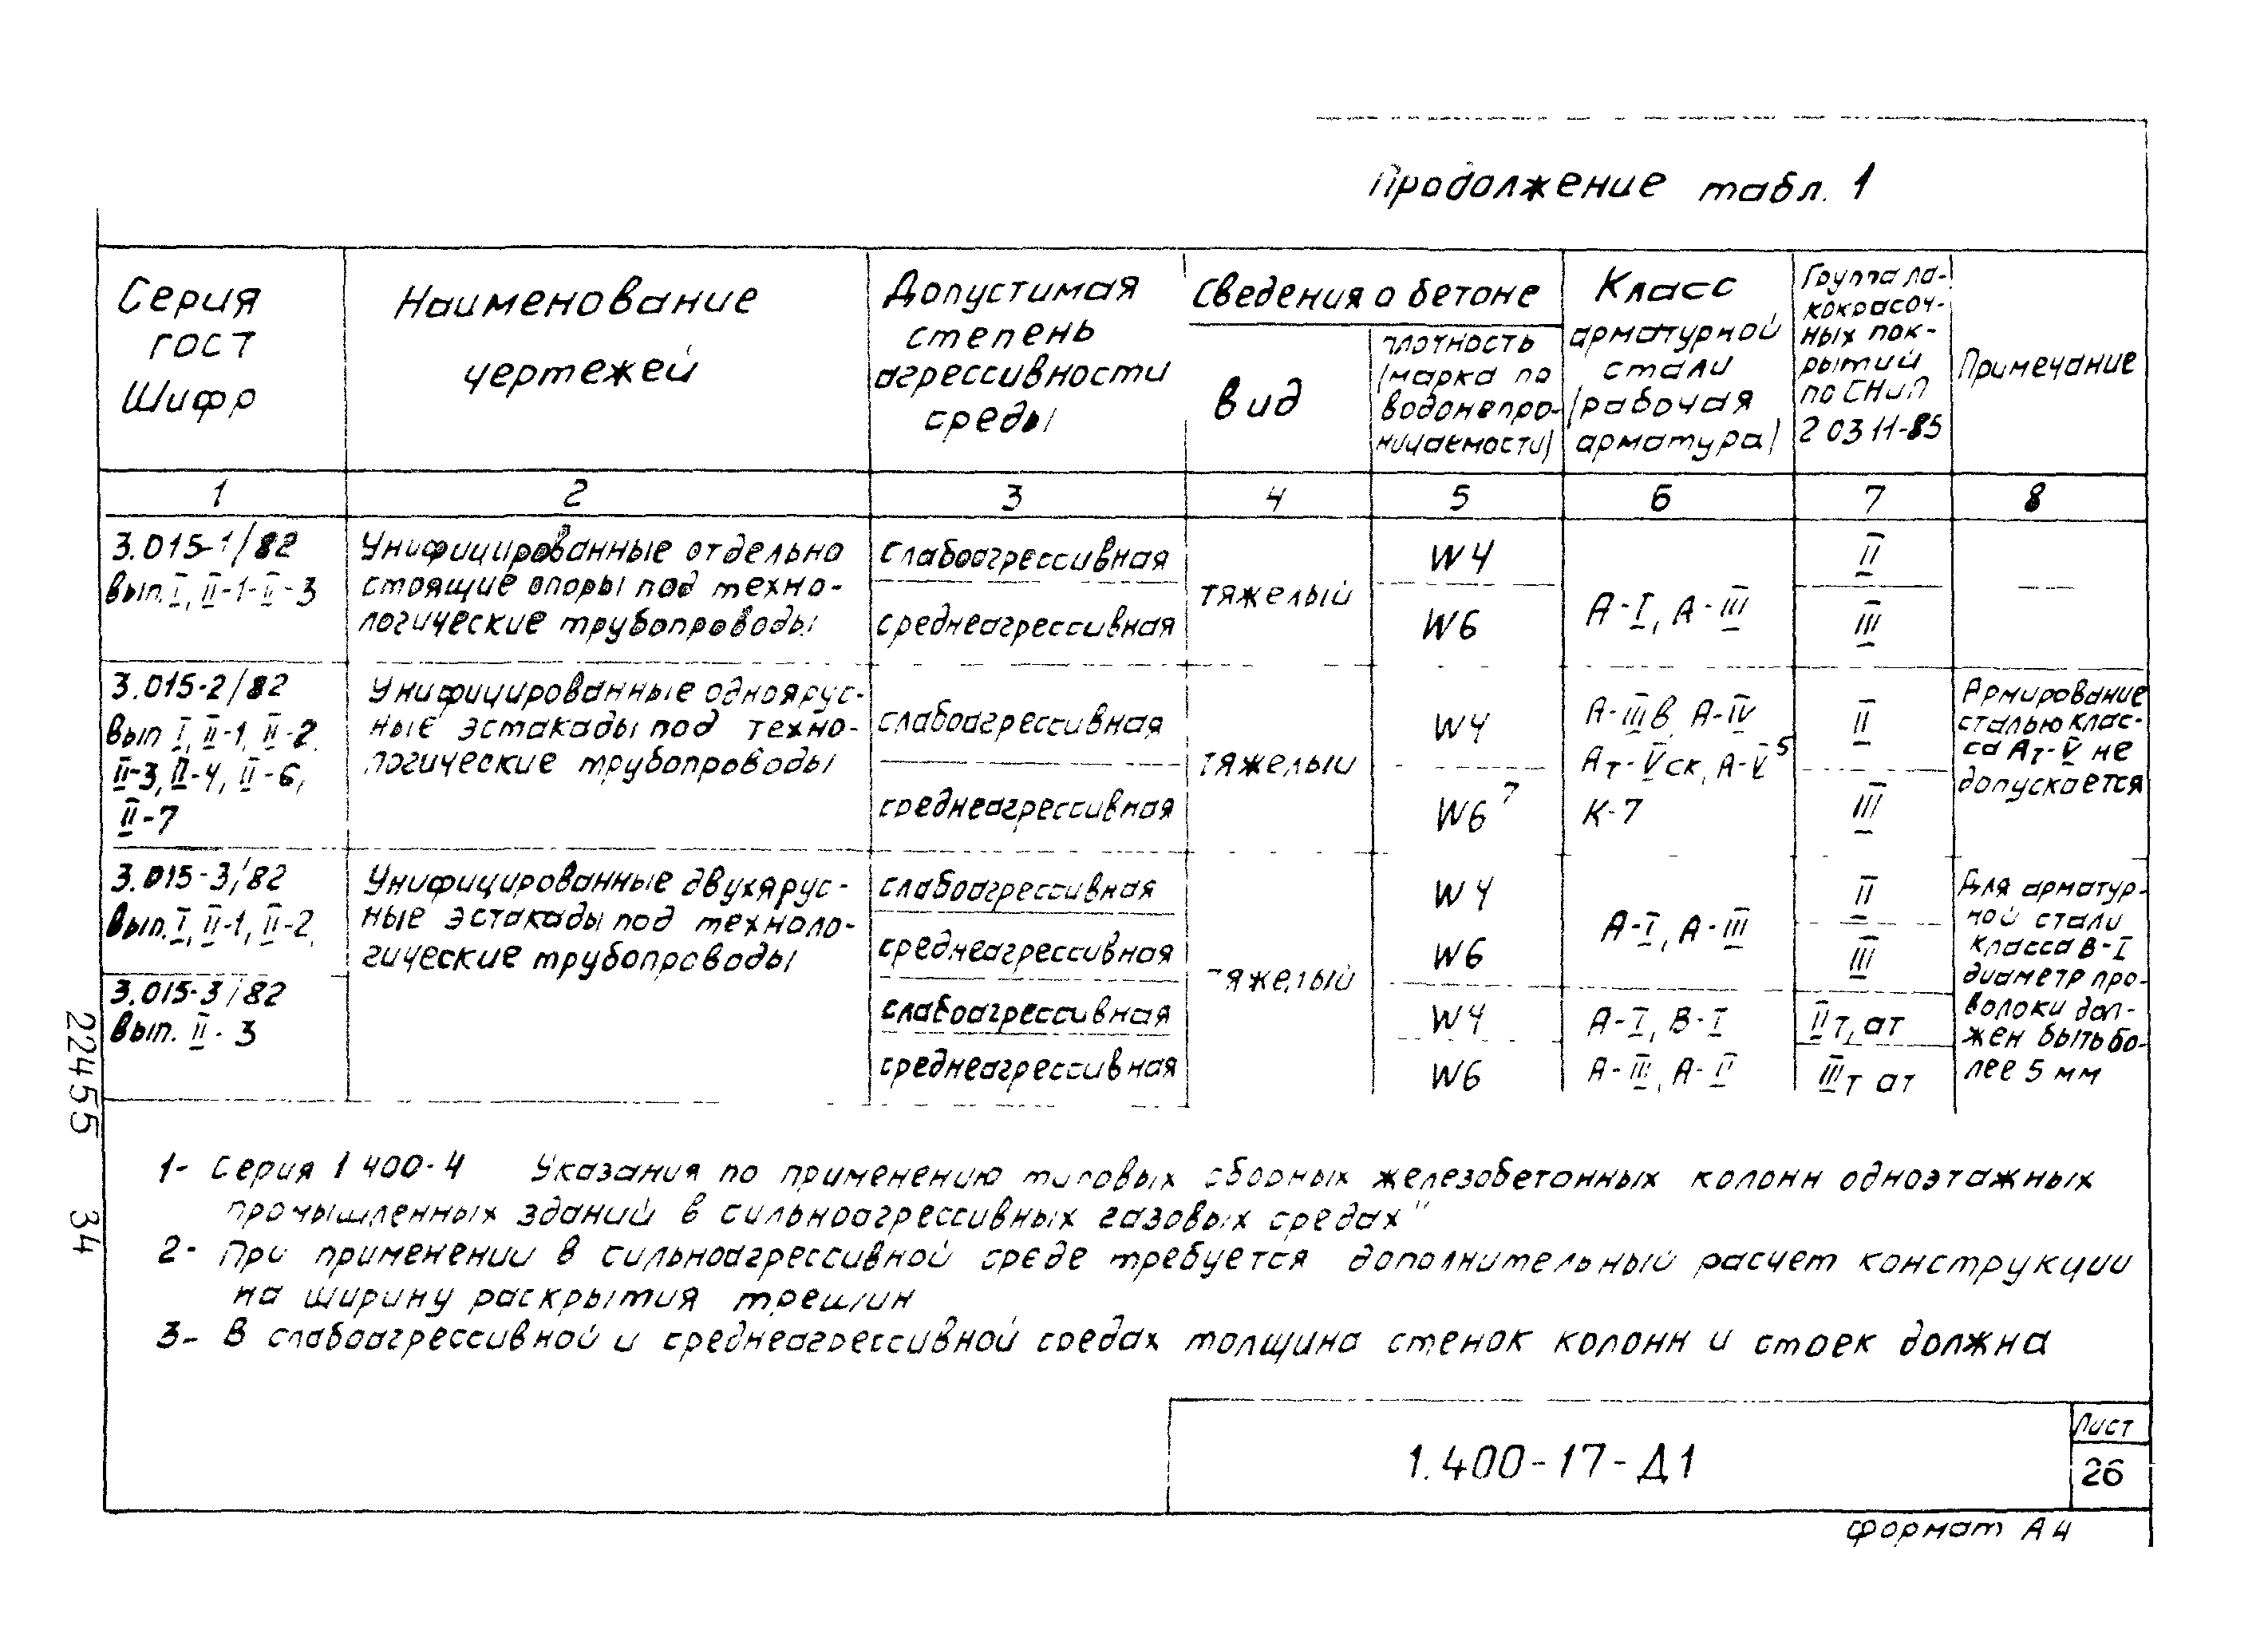 Продолжение табл. 1
Серия
ГОСТ
Шифр
Наименование
чертежей
Допустимая
степень
агрессивности
среды
Сведения о бетоне
вид
плотность
(марка по
водонепро-
ницаемости)
Класс
арматурной
стали
(рабочая
арматура)
Группа ла-
кокрасоч-
ных пок-
рытий
по СНиП
2 03 11-85
Примечание
1 2 3 4 5 6 7 8
3.015-1/82
Вып. I, II-1-II-3
Унифицированные отдельно
стоящие опоры под техно-
логические трубопроводы
слабоагрессивная
среднеагрессивная
тяжелый
W4
W6
А-I, А-III
II
III
—
3.015-2/82
Вып I, II-1, II-2
II-3, II-4, II-6,
II-7
Унифицированные одноярус-
ные эстакады под техно-
логические трубопроводы
слабоагрессивная
среднеагрессивная
тяжелый
W4
W6 7
А-IIIв, А-IV
Ат-Vск, А-V 5
К-7
II
III
Армирование
сталью клас-
са Ат-V не
допускается
3.015-3/82
Вып. I, II-1, II-2,
Унифицированные двухярус-
ные эстакады под техноло-
гические трубопроводы
слабоагрессивная
среднеагрессивная
тяжелый
W4
W6
А-I, А-III
II
III
Для арматур-
ной стали
класса В-I
диаметр про-
волоки дол-
жен быть бо-
лее 5 мм
3.015-3/82
Вып. II-3
слабоагрессивная
среднеагрессивная
W4
W6
А-I, В-I
А-III, А-II
IIт, ат
IIIт ат
1- Серия 1 400-4 Указания по применению типовых сборных железобетонных колонн одноэтажных
промышленных зданий в сильноагрессивных газовых средах"
2- При применении в сильноагрессивной среде требуется дополнительный расчет конструкции
на ширину раскрытия трещин
3- В слабоагрессивной и среднеагрессивной средах толщина стенок колонн и стоек должна
1.400-17-Д1
Лист
26
Формат А4
22455 34